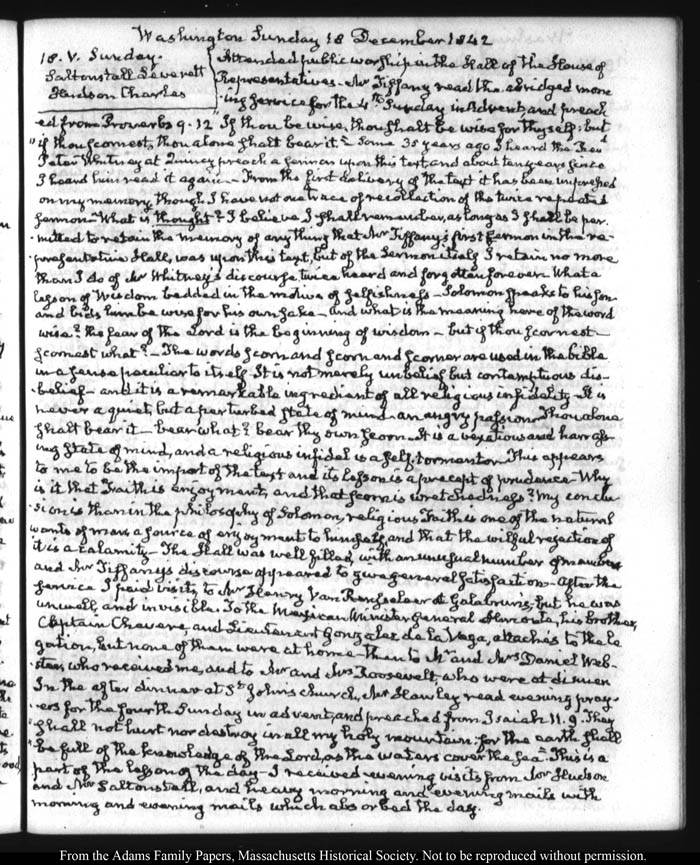 Washington Sunday 18 December 1842
18. V. Sunday.
Saltonstall Leverett
Hudson Charles
Attended public worship in the Hall of the House of
Representatives. Mr Tiffany read the abridged morn-
ing service for the 4th Sunday in Advent and preach
ed from Proverbs 9.12 "If thou be wise, thou shalt be wise for thyself: but
if thou scornest, thou alone shalt bear it" – Some 35 years ago I heard the Revd
Peter Whitney at Quincy preach a sermon upon this text, and about ten years since
I heard him read it again – From the first delivery of the text it has been impressed
on my memory, though I have not one trace of recollection of the twice repeated
sermon – What is thought? I believe I shall remember, as long as I shall be per-
mitted to retain the memory of any thing that Mr Tiffany's first sermon in the re-
presentative Hall, was upon this text, but of the Sermon itself I retain no more
than I do of Mr Whitney's discourse, twice heard and forgotten forever. What a
lesson of Wisdom bedded in the motive of selfishness – Solomon speaks to his son
and bids him be wise for his own sake – and what is the meaning here of the word
wise? the fear of the Lord is the beginning of wisdom – but if thou scornest –
scornest what? – The words scorn and scorn and scorner are used in the bible
in a sense peculiar to itself. It is not merely unbelief but contemptuous dis-
belief – and it is a remarkable ingredient of all religious infidelity. It is
never a quiet, but a perturbed state of mind – an angry passion. Thou alone
shalt bear it – bear what? bear thy own scorn – It is a vexatious and harrass-
ing state of mind, and a religious infidel is a self-tormentor. This appears
to me to be the import of the text and its lesson is a precept of prudence – Why
is it that Faith is enjoyment, and that scorn is wretchedness? My conclu
sion is that in the philosophy of Solomon, religious Faith is one of the natural
wants of man, a source of enjoyment to himself, and that the wilful rejection of
it is a calamity – The Hall was well filled, with an unusual number of members
and Mr Tiffany's discourse appeared to give general satisfaction – After the
service I paid visits, to Mr Henry Van Rensselaer at Galabrun's, but he was
unwell, and invisible. To the Mexican Minister General Almonte, his brother,
Captain Chavero, and Lieutenant Gonzalez de la Vega, attachés to the le
gation, but none of them were at home – then to Mr and Mrs Daniel Web-
ster, who received me, and to Mr and Mrs Roosevelt, who were at dinner
In the after dinner at St John's church, Mr Hawley read evening pray-
ers for the fourth Sunday in advent, and preached from Isaiah 11.9. They
shall not hurt nor destroy in all my holy mountain: for the earth shall
be full of the knowledge of the Lord, as the waters cover the sea" This is a
part of the lesson of the day – I received evening visits from Mr Hudson
and Mr Saltonstall, and heavy morning and evening mails with
morning and evening mails which absorbed the day.
From the Adams Family Papers, Massachusetts Historical Society. Not to be reproduced without permission.